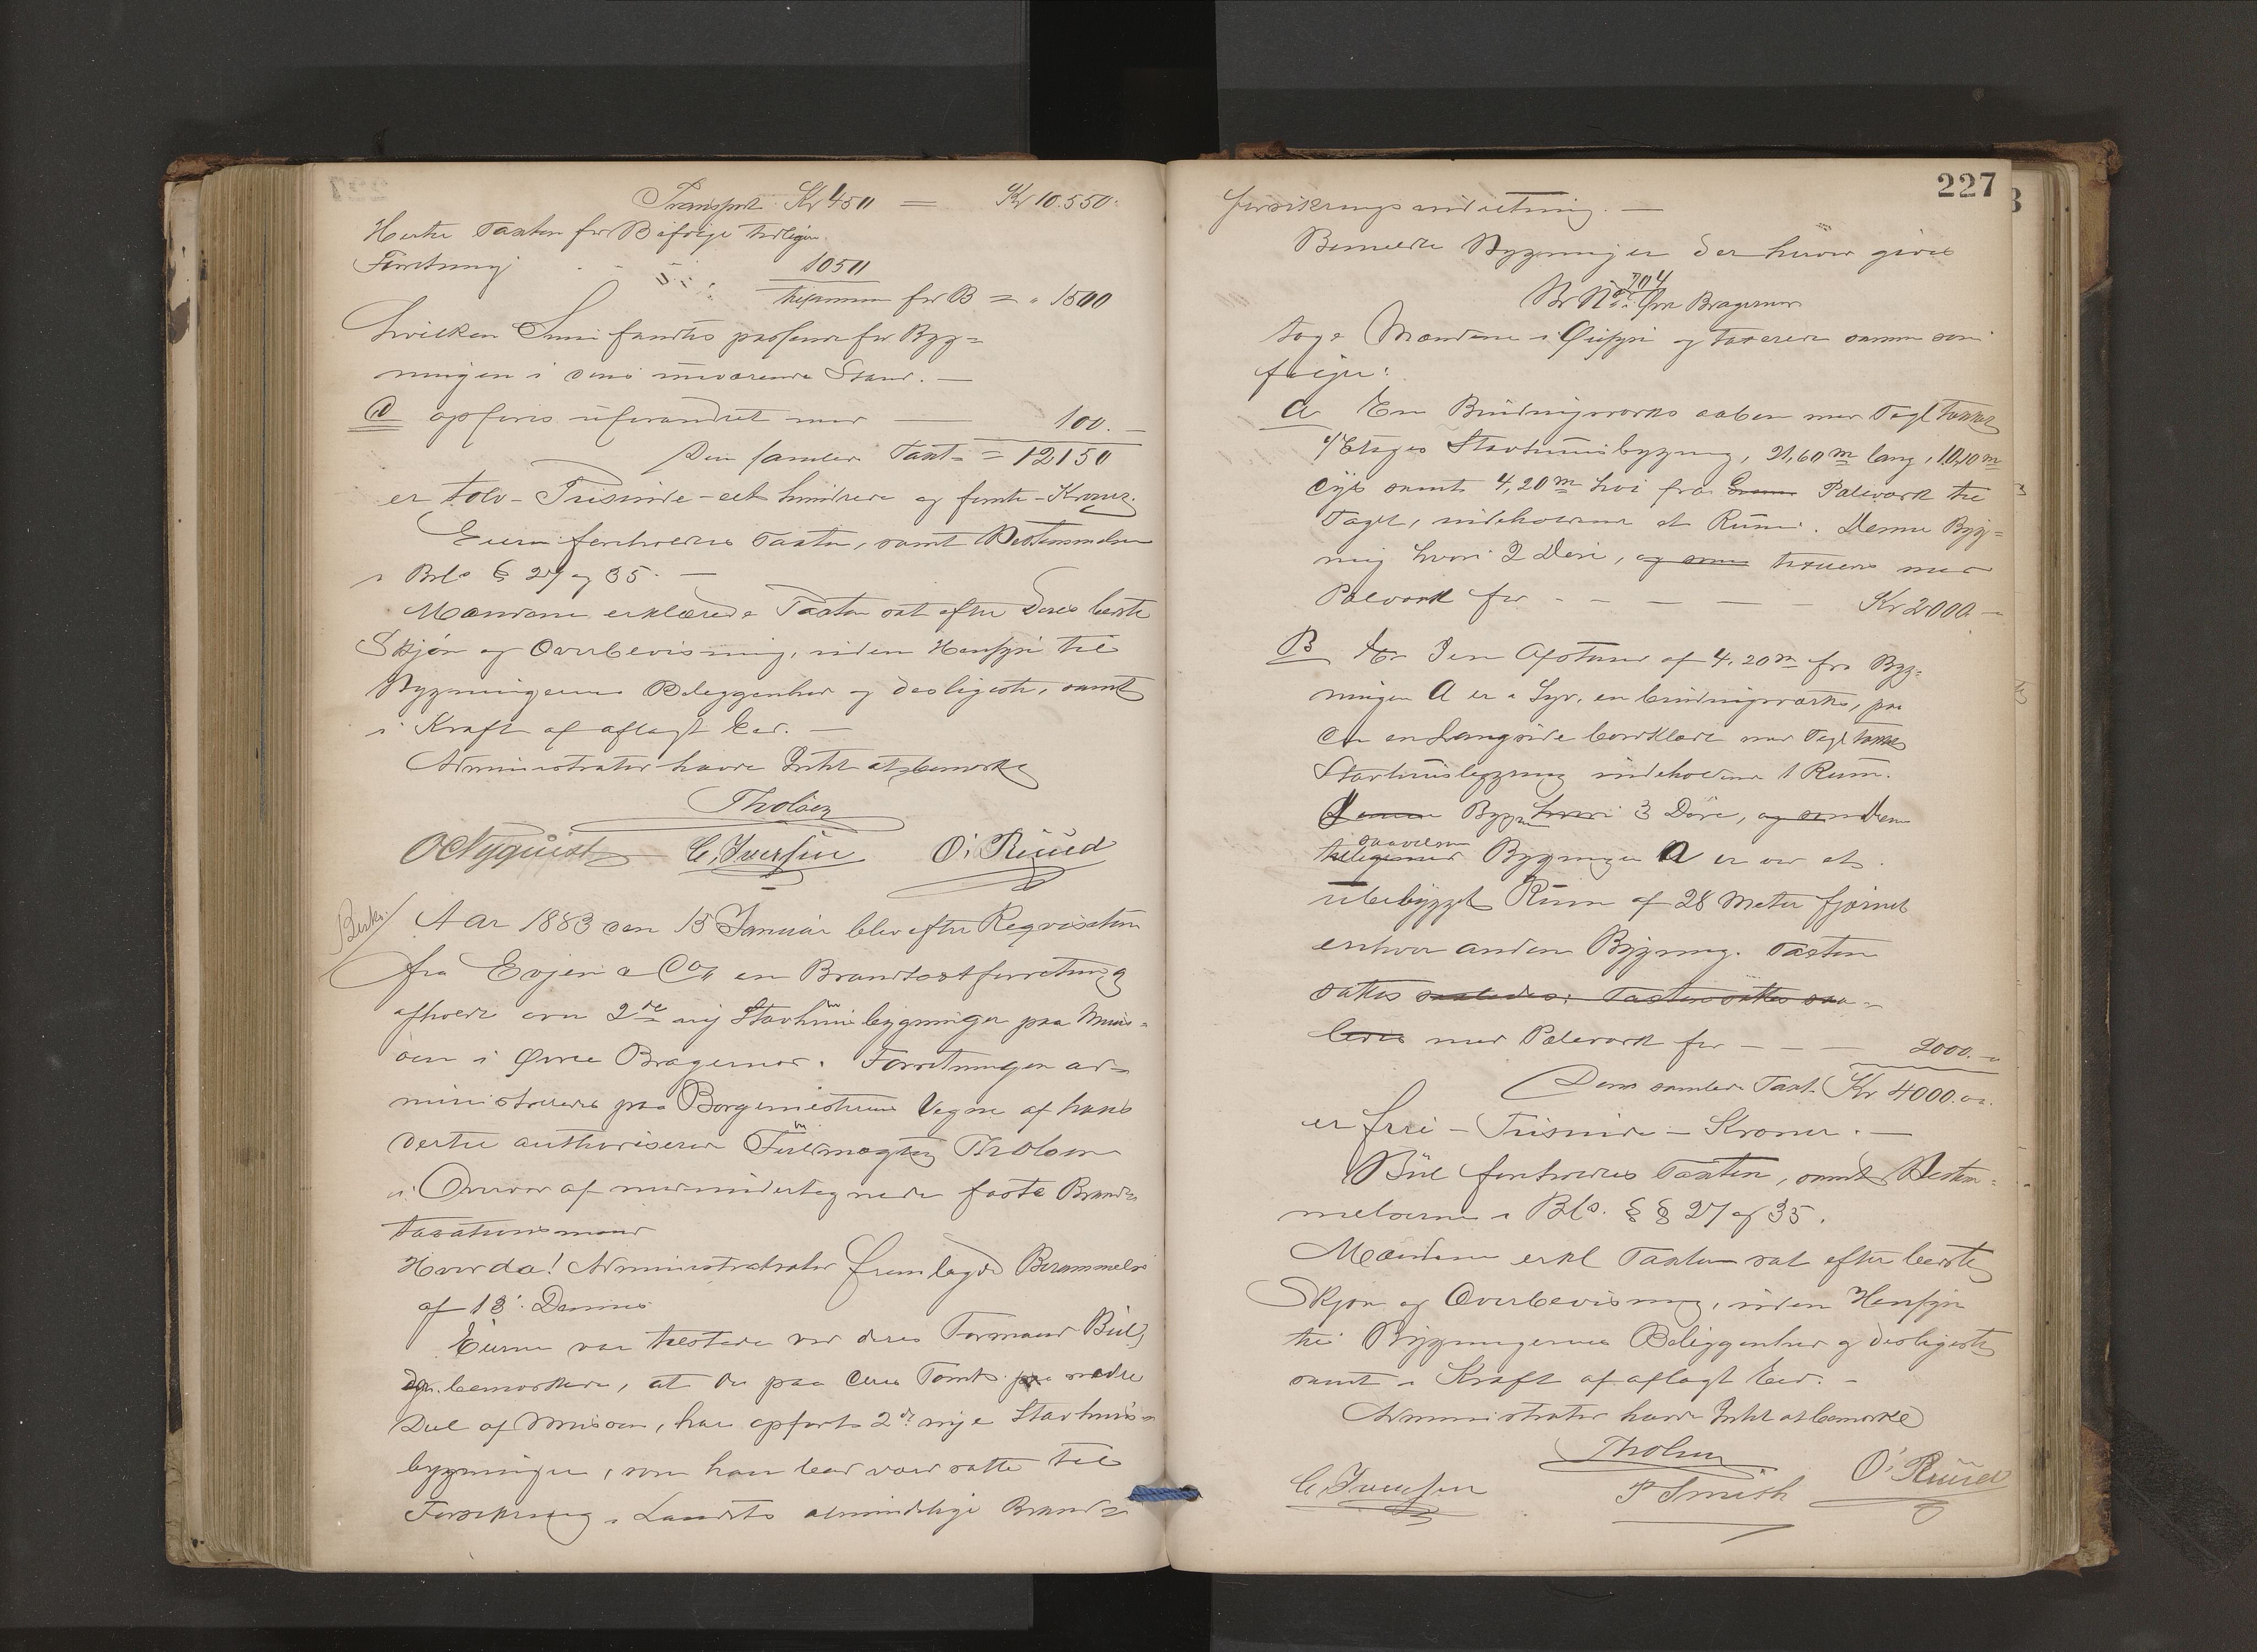 Transport Kr 450 = Kr 10.550.
Hertil Taxten for B ifølge tidligere
Forretning 1050
tilsammen for B = " 1500
hvilken Sum fandtes passende for Byg-
ningen i dens nuværende Stand. —
D opføres uforandret med — 100. —
Den samlede Taxt = 12150
er tolv-Tusinde-et hundrede og femti-Kroner.
Eieren foreholdtes Taxten, samt Bestemmelsen
i Brl. § 27 og 35. —
Mændene erklærede Taxten sat efter deres bedste
Skjøn og Overbevisning, uden Hensyn til
Bygningernes Beliggenhed og desligeste, samt
i Kraft af aflagt Eed. —
Administrator havde Intet at bemærke
Tholsen
O C Nyquist C. Iversen O. Ruud
Besk.
Aar 1883 den 15 Januar blev efter Reqvisition
fra Evjen & Co en Brandtaxtforretning
afholdt over 2de ny Stavhuusbygninger paa Muus-
øen i Øvre Bragernæs. Forretningen ad-
ministreredes paa Borgemesterens Vegne af hans
dertil authoriserede Fuldmægtig Tholsen
i Overvær af nedenundertegnede faste Brand-
taxationsmænd
Hvorda! Administrator fremlagde Berammelse
af 13. Dennes
Eierne var tilstede ved deres Formand Biil,
der bemærkede, at der paa deres Tomt paa nedre
Deel af Muusøen, har opført 2de nye Stavhuus-
bygninger, som han bad være satte til
Forsikring i Landets almindelige Brand-
227
forsikringsindretning. —
Bemeldte Bygninger der herved gives
704
Br No. Øvre Bragernæs
toge Mændene i Øiesyn og taxerede samme som
følger:
A En Bindingsværks aaben med Tagl tækket
1 Etages Stavhuusbygning, 21,60 m lang, 10,10 m
dyb samt 4,20 m høi fra Pæleværk til
Taget, indeholdende et Rum. Denne Byg-
ning hvori 2 Døre, og som taxeres med
Pæleværk for - - - — — Kr 2000 —
B I en Afstand af 4,20 m fra Byg-
ningen A er i Syd, en bindingsværks, paa
den en Langside bordklædt med Tagl tækket
Stavhuusbygning indeholdende 1 Rum.
Denne Bygn hvori 3 Døre, og som denne
saavelsom
Bygningen A er ved et
ubebygget Rum af 28 Meter fjernet
enhver anden Bygning. Taxten
sættes saaledes: Taxten sættes saa-
ledes med Pæleværk for — — — 2000. —
Dens samlede Taxt Kr 4000.00.
er fire-Tusinde-Kroner. —
Biil foreholdtes Taxten, samt Bestem-
melserne i Bl. § § 27 og 35.
Mændene erkl Taxten sat efter bedste
Skjøn og Overbevisning, uden Hensyn
til Bygningernes Beliggenhed og desligeste
samt i Kraft af aflagt Eed. -
Administrator havde Intet at bemærke
Tholsen
C. Iversen P Smith O. Ruud